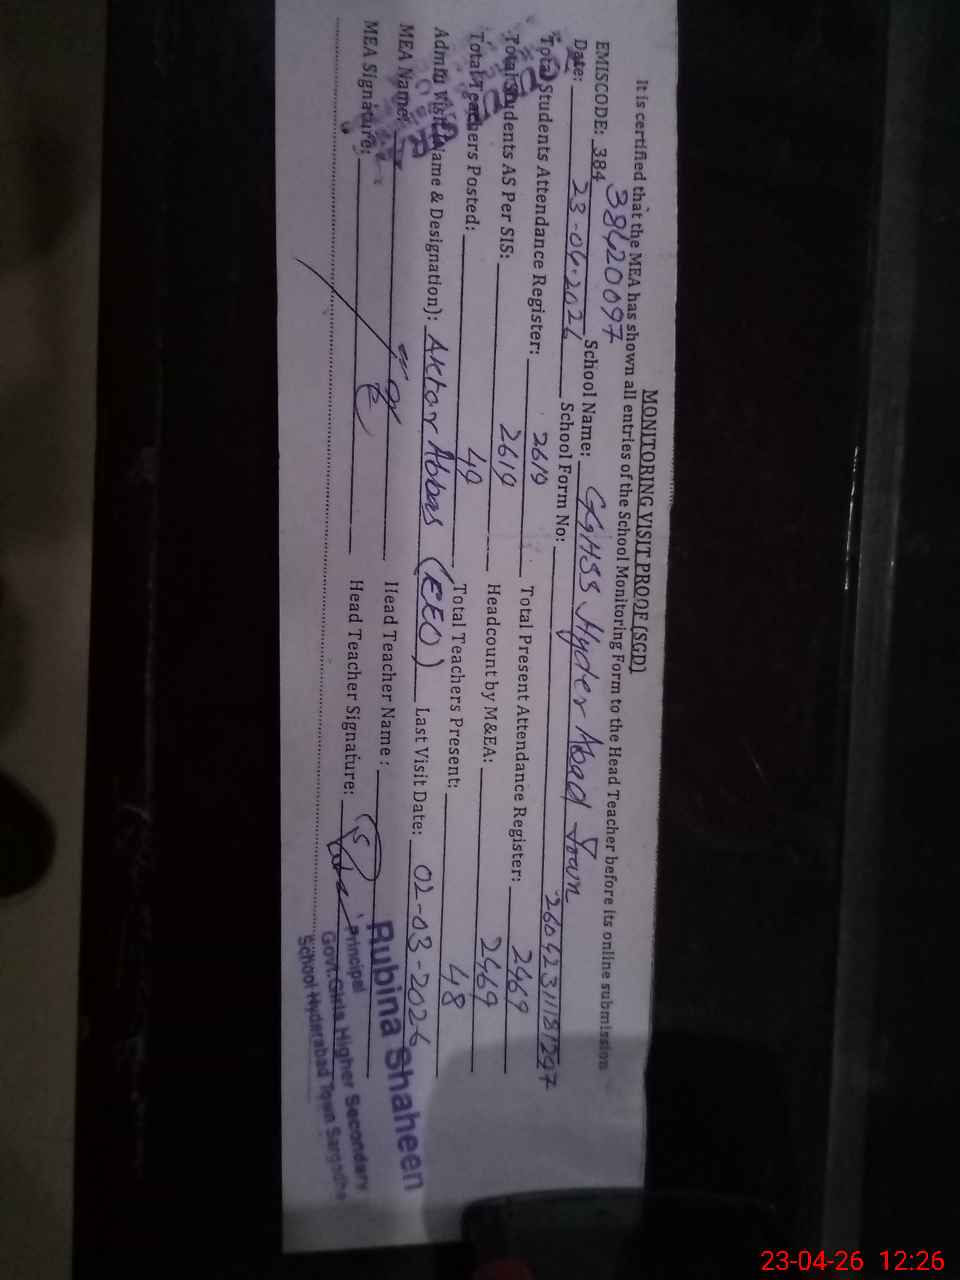 MONITORING VISIT PROOF (SGD)
It is certified that the MEA has shown all entries of the School Monitoring Form to the Head Teacher before its online submission
38420097
EMISCODE: 384 School Name: GGHSS Hyder Abad Town
Date: 23-04-2026 School Form No: 
Total Students Attendance Register: 2619 Total Present Attendance Register: 2469
Total Students AS Per SIS: 2619 Headcount by M&EA: 2469
Total Teachers Posted: 49 Total Teachers Present: 48
Admin Visit (Name & Designation): Aktar Abbas (CEO) Last Visit Date: 02-03-2026
MEA Name: Head Teacher Name :
MEA Signature: Head Teacher Signature:
Rubina Shaheen
Principal
Govt. Girls Higher Secondary
School Hyderabad Town Sargodha
23-04-26 12:26